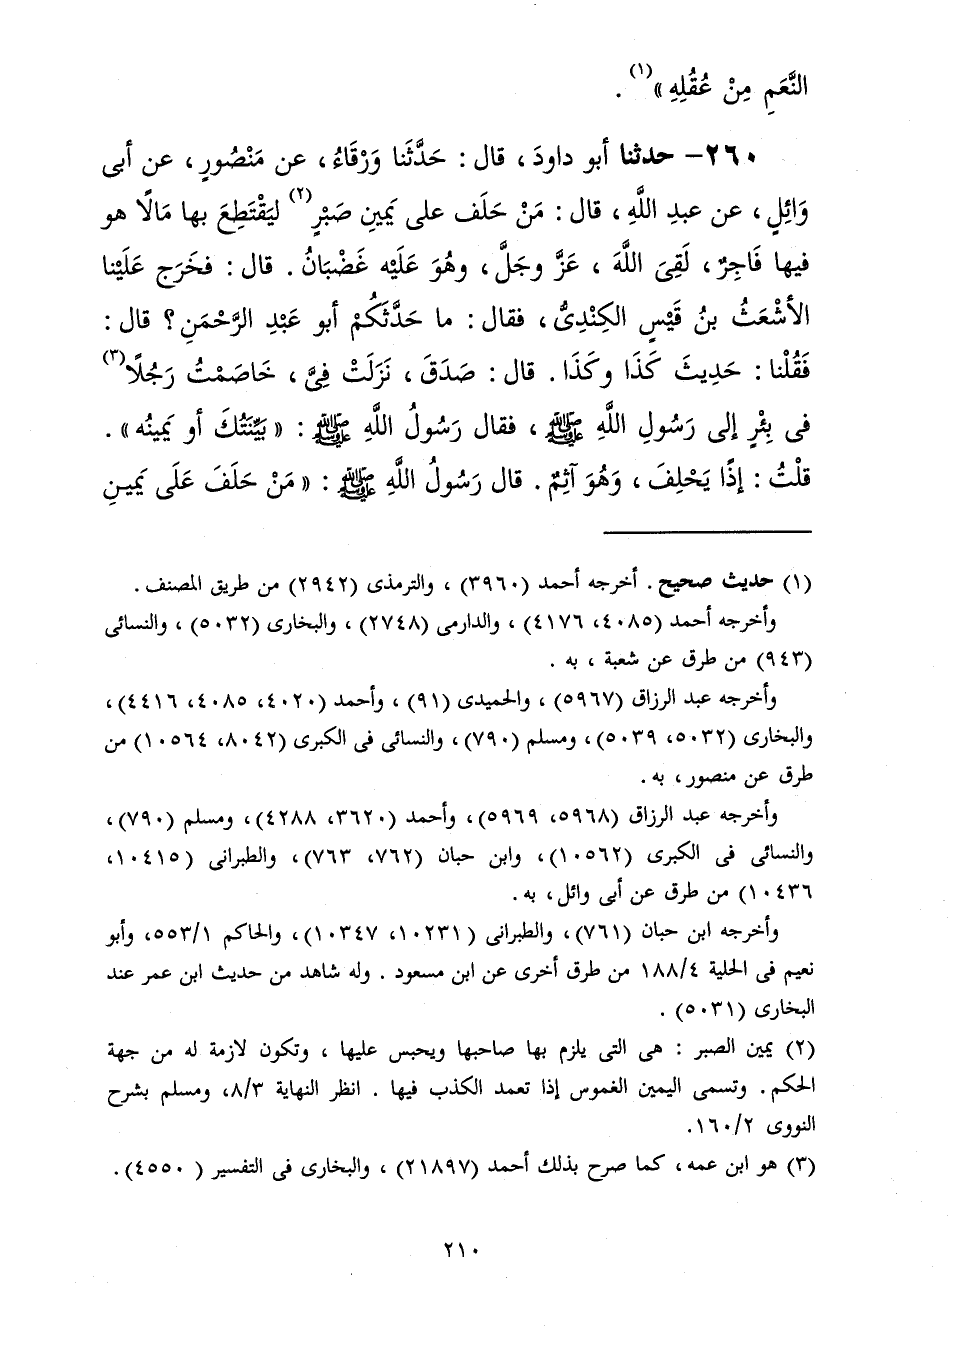 النَّعَمِ مِنْ عُقُلِهِ »(١) .
٢٦٠- حدثنا أبو داودَ ، قال : حَدَّثَنا وَرْقَاءُ ، عن مَنْصُورٍ ، عن أبى
وَائِلٍ ، عن عبدِ اللَّهِ ، قال : مَنْ حَلَف على يَمينِ صَبْرٍ(٢) ليَقْتَطِعَ بها مَالًا هو
فيها فَاجِرٌ ، لَقِىَ اللَّهَ ، عَزَّ وجَلَّ ، وهُوَ عَلَيْه غَضْبَانُ . قال : فخَرَج عَلَيْنا
الأشْعَثُ بنُ قَيْسٍ الكِنْدِىُّ ، فقال : ما حَدَّثَكُمْ أبو عَبْدِ الرَّحْمَنِ ؟ قال :
فَقُلْنا : حَدِيثَ كَذَا وكَذَا . قال : صَدَقَ ، نَزَلَتْ فِىَّ ، خَاصَمْتُ رَجُلًا(٣)
فى بِئْرٍ إلى رَسُولِ اللَّهِ ﷺ ، فقال رَسُولُ اللَّهِ ﷺ : « بَيِّنَتُكَ أو يَمِينُه » .
قلْتُ : إذًا يَحْلِفَ ، وَهُوَ آثِمٌ . قال رَسُولُ اللَّهِ ﷺ : « مَنْ حَلَفَ عَلَى يَمِينِ
(١) حديث صحيح . أخرجه أحمد (٣٩٦٠) ، والترمذى (٢٩٤٢) من طريق المصنف .
وأخرجه أحمد (٤٠٨٥، ٤١٧٦) ، والدارمى (٢٧٤٨) ، والبخارى (٥٠٣٢) ، والنسائى
(٩٤٣) من طرق عن شعبة ، به .
وأخرجه عبد الرزاق (٥٩٦٧) ، والحميدى (٩١) ، وأحمد (٤٠٢٠، ٤٠٨٥، ٤٤١٦) ،
والبخارى (٥٠٣٢، ٥٠٣٩) ، ومسلم (٧٩٠) ، والنسائى فى الكبرى (٨٠٤٢، ١٠٥٦٤) من
طرق عن منصور ، به .
وأخرجه عبد الرزاق (٥٩٦٨، ٥٩٦٩) ، وأحمد (٣٦٢٠، ٤٢٨٨) ، ومسلم (٧٩٠) ،
والنسائى فى الكبرى (١٠٥٦٢) ، وابن حبان (٧٦٢، ٧٦٣) ، والطبرانى (١٠٤١٥،
١٠٤٣٦) من طرق عن أبى وائل ، به .
وأخرجه ابن حبان (٧٦١) ، والطبرانى (١٠٢٣١، ١٠٣٤٧) ، والحاكم ٥٥٣/١، وأبو
نعيم فى الحلية ١٨٨/٤ من طرق أخرى عن ابن مسعود . وله شاهد من حديث ابن عمر عند
البخارى (٥٠٣١) .
(٢) يمين الصبر : هى التى يلزم بها صاحبها ويحبس عليها ، وتكون لازمة له من جهة
الحكم . وتسمى اليمين الغموس إذا تعمد الكذب فيها . انظر النهاية ٨/٣، ومسلم بشرح
النووى ١٦٠/٢.
(٣) هو ابن عمه ، كما صرح بذلك أحمد (٢١٨٩٧) ، والبخارى فى التفسير ( ٤٥٥٠) .
٢١٠